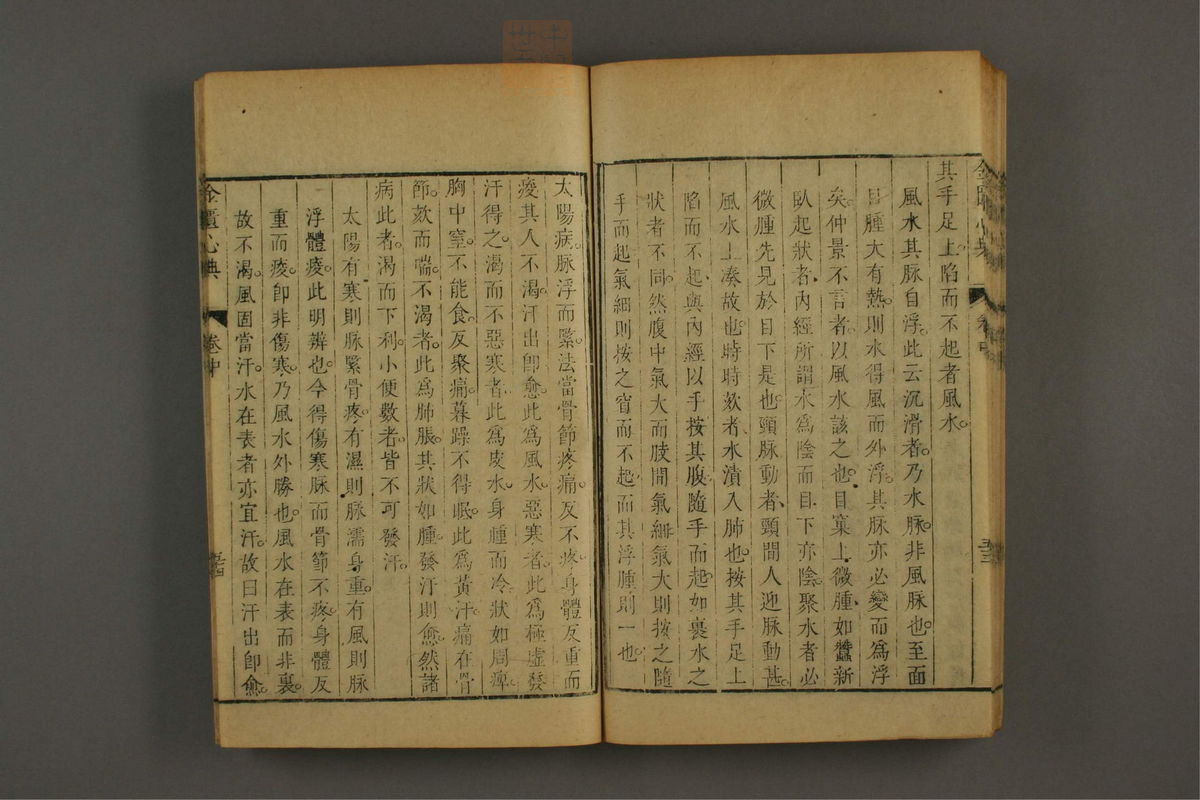 金匱心典 卷中 五三
其手足上陷而不起者風水
風水其脉自浮此云沉滑者乃水脉非風脉也至面
目腫大有熱則水得風而外浮其脉亦必變而為浮
矣仲景不言者以風水該之也目窠上微腫如蠶新
臥起狀者內經所謂水為陰而目下亦陰聚水者必
微腫先見於目下是也頸脉動者頸間人迎脉動甚
風水上凑故也時時欬者水漬入肺也按其手足上
陷而不起與內經以手按其腹隨手而起如裹水之
狀者不同然腹中氣大而肢間氣細氣大則按之隨
手而起氣細則按之窅而不起而其浮腫則一也
太陽病脉浮而緊法當骨節疼痛反不疼身體反重而
痠其人不渴汗出卽愈此為風水惡寒者此為極虛發
汗得之渴而不惡寒者此為皮水身腫而冷狀如周痺
胸中窒不能食反聚痛暮躁不得眠此為黃汗痛在骨
節欬而喘不渴者此為肺脹其狀如腫發汗則愈然諸
病此者渴而下利小便數者皆不可發汗
太陽有寒則脉緊骨疼有濕則脉濡身重有風則脉
浮體痠此明辨也今得傷寒脉而骨節不疼身體反
重而痠卽非傷寒乃風水外勝也風水在表而非裏
故不渴風固當汗水在表者亦宜汗故曰汗出卽愈
金匱心典 卷中 五四